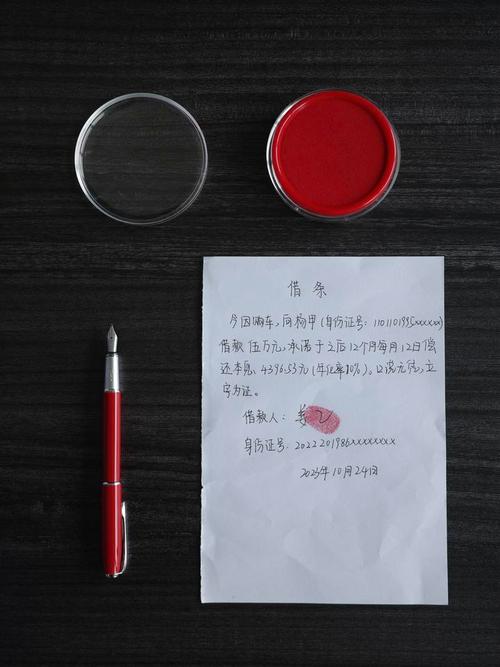 借条
今因购车，向杨甲（身份证号：110110195xxxxxx）
借款伍万元，承诺于之后12个月每月12日偿
还本息4396.53元（年化率10%）。口说无凭，立
字为证。
借款人：姜乙
身份证号：2022201986xxxxxxxx
2023年10月24日